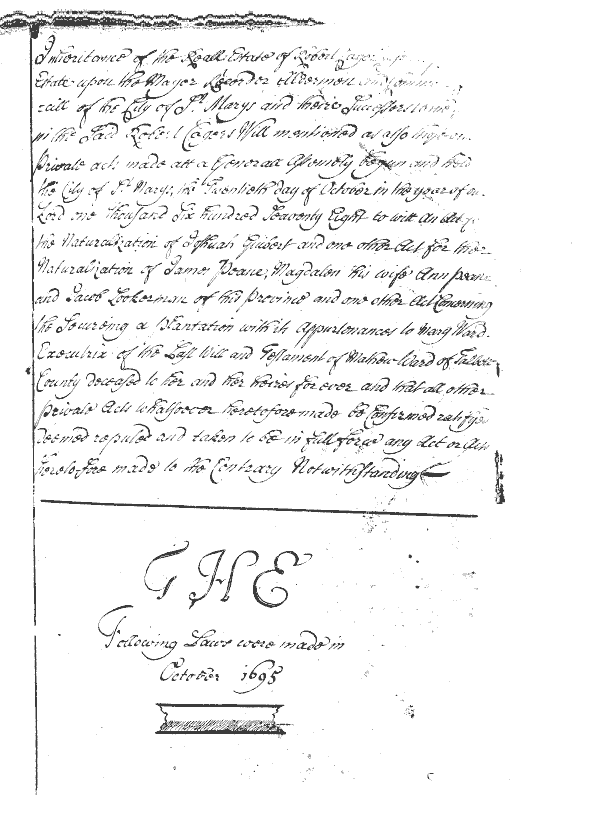 Inheritance of the Reall Estate of Robert Cager
Estate upon the Mayor Recorder Aldermen and
cill of the City of St. Marys and theire Successers
in the said Robert Cagers Will mentioned as also
Private acts made att a Generall Assembly begun and held
the City of St. Marys, the Twentieth day of October in the year of
Lord one thousand Six hundred Seaventy Eight to witt an Act
the Naturalization of Joshuah Guibert and one other Act for the
Naturalization of James Peane, Magdalen his wife Ann
and Jacob Lookerman of this Province and one other Act Concerning
the Secureing a Plantation with its Appurtenances to Mary Ward
Executrix of the Last Will and Testament of Mathew Ward of Talbott
County deceased to her and her heires for ever and that all other
Private Acts whatsoever heretofore made be Confirmed
deemed reputed and taken to be in full force any Act or Acts
heretofore made to the Contrary Notwithstanding
THE
Following Laws were made in
October 1695